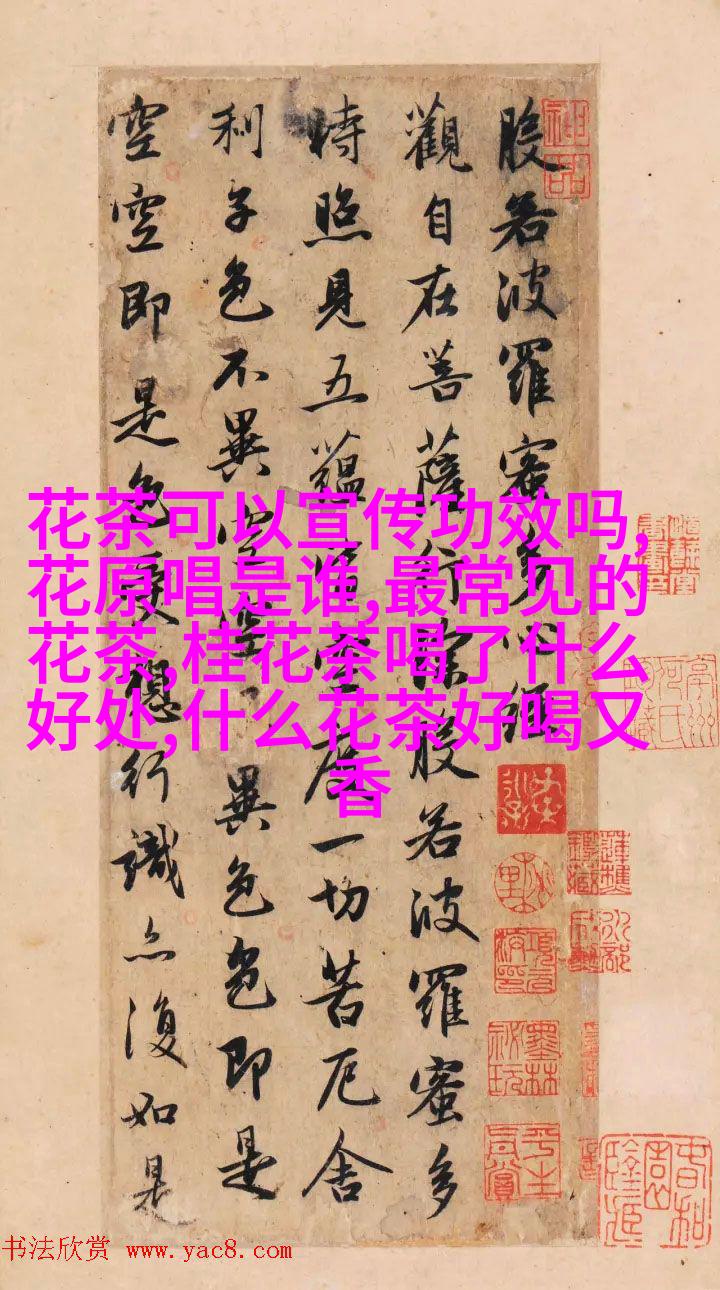 般若波羅蜜多心經
觀自在菩薩行深般若波羅蜜多
時照見五蘊皆空度一切苦厄舍
利子色不異空空不異色色即是
空空即是色受想行識亦復如是
神品
花茶可以宣传功效吗,
花原唱是谁,最常见的
花茶,桂花茶喝了什么
好处,什么花茶好喝又
香
书法欣赏 www.yac8.com